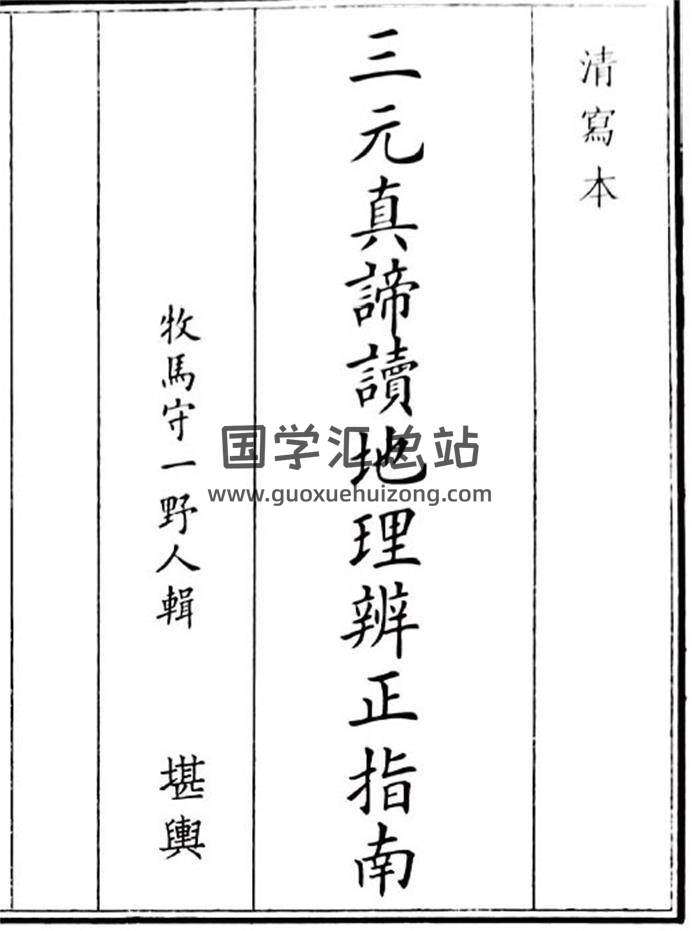 清寫本
三元真諦讀地理辨正指南
牧馬守一野人輯 堪輿
国学汇总站
www.guoxuehuizong.com